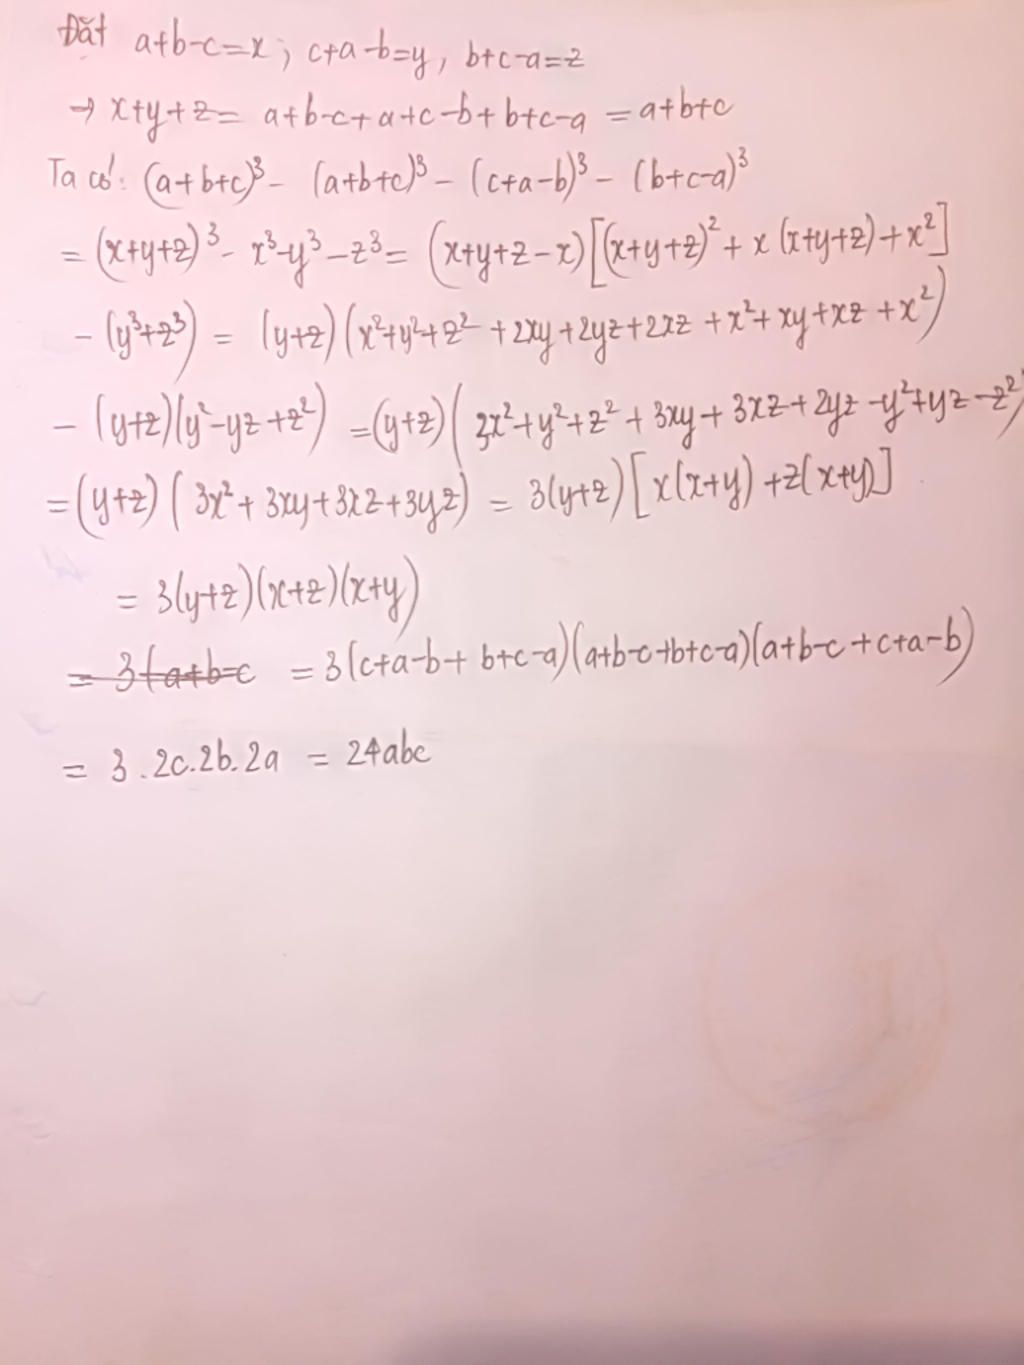 Đặt a+b-c=x; c+a-b=y, b+c-a=z
→ x+y+z= a+b-c+a+c-b+b+c-a =a+b+c
Ta có: (a+b+c)³- (a+b+c)³- (c+a-b)³- (b+c-a)³
= (x+y+z)³- x³-y³-z³= (x+y+z-x)[(x+y+z)²+x(x+y+z)+x²]
-(y³+z³) = (y+z)(x²+y²+z²+2xy+2yz+2xz+x²+xy+xz+x²)
- (y+z)(y²-yz+z²) =(y+z)(3x²+y²+z²+3xy+3xz+2yz-y²+yz-z²)
=(y+z)(3x²+3xy+3xz+3yz) = 3(y+z)[x(x+y)+z(x+y)]
= 3(y+z)(x+z)(x+y)
= 3(a+b-c = 3(c+a-b+b+c-a)(a+b-c+b+c-a)(a+b-c+c+a-b)
= 3.2c.2b.2a = 24abc